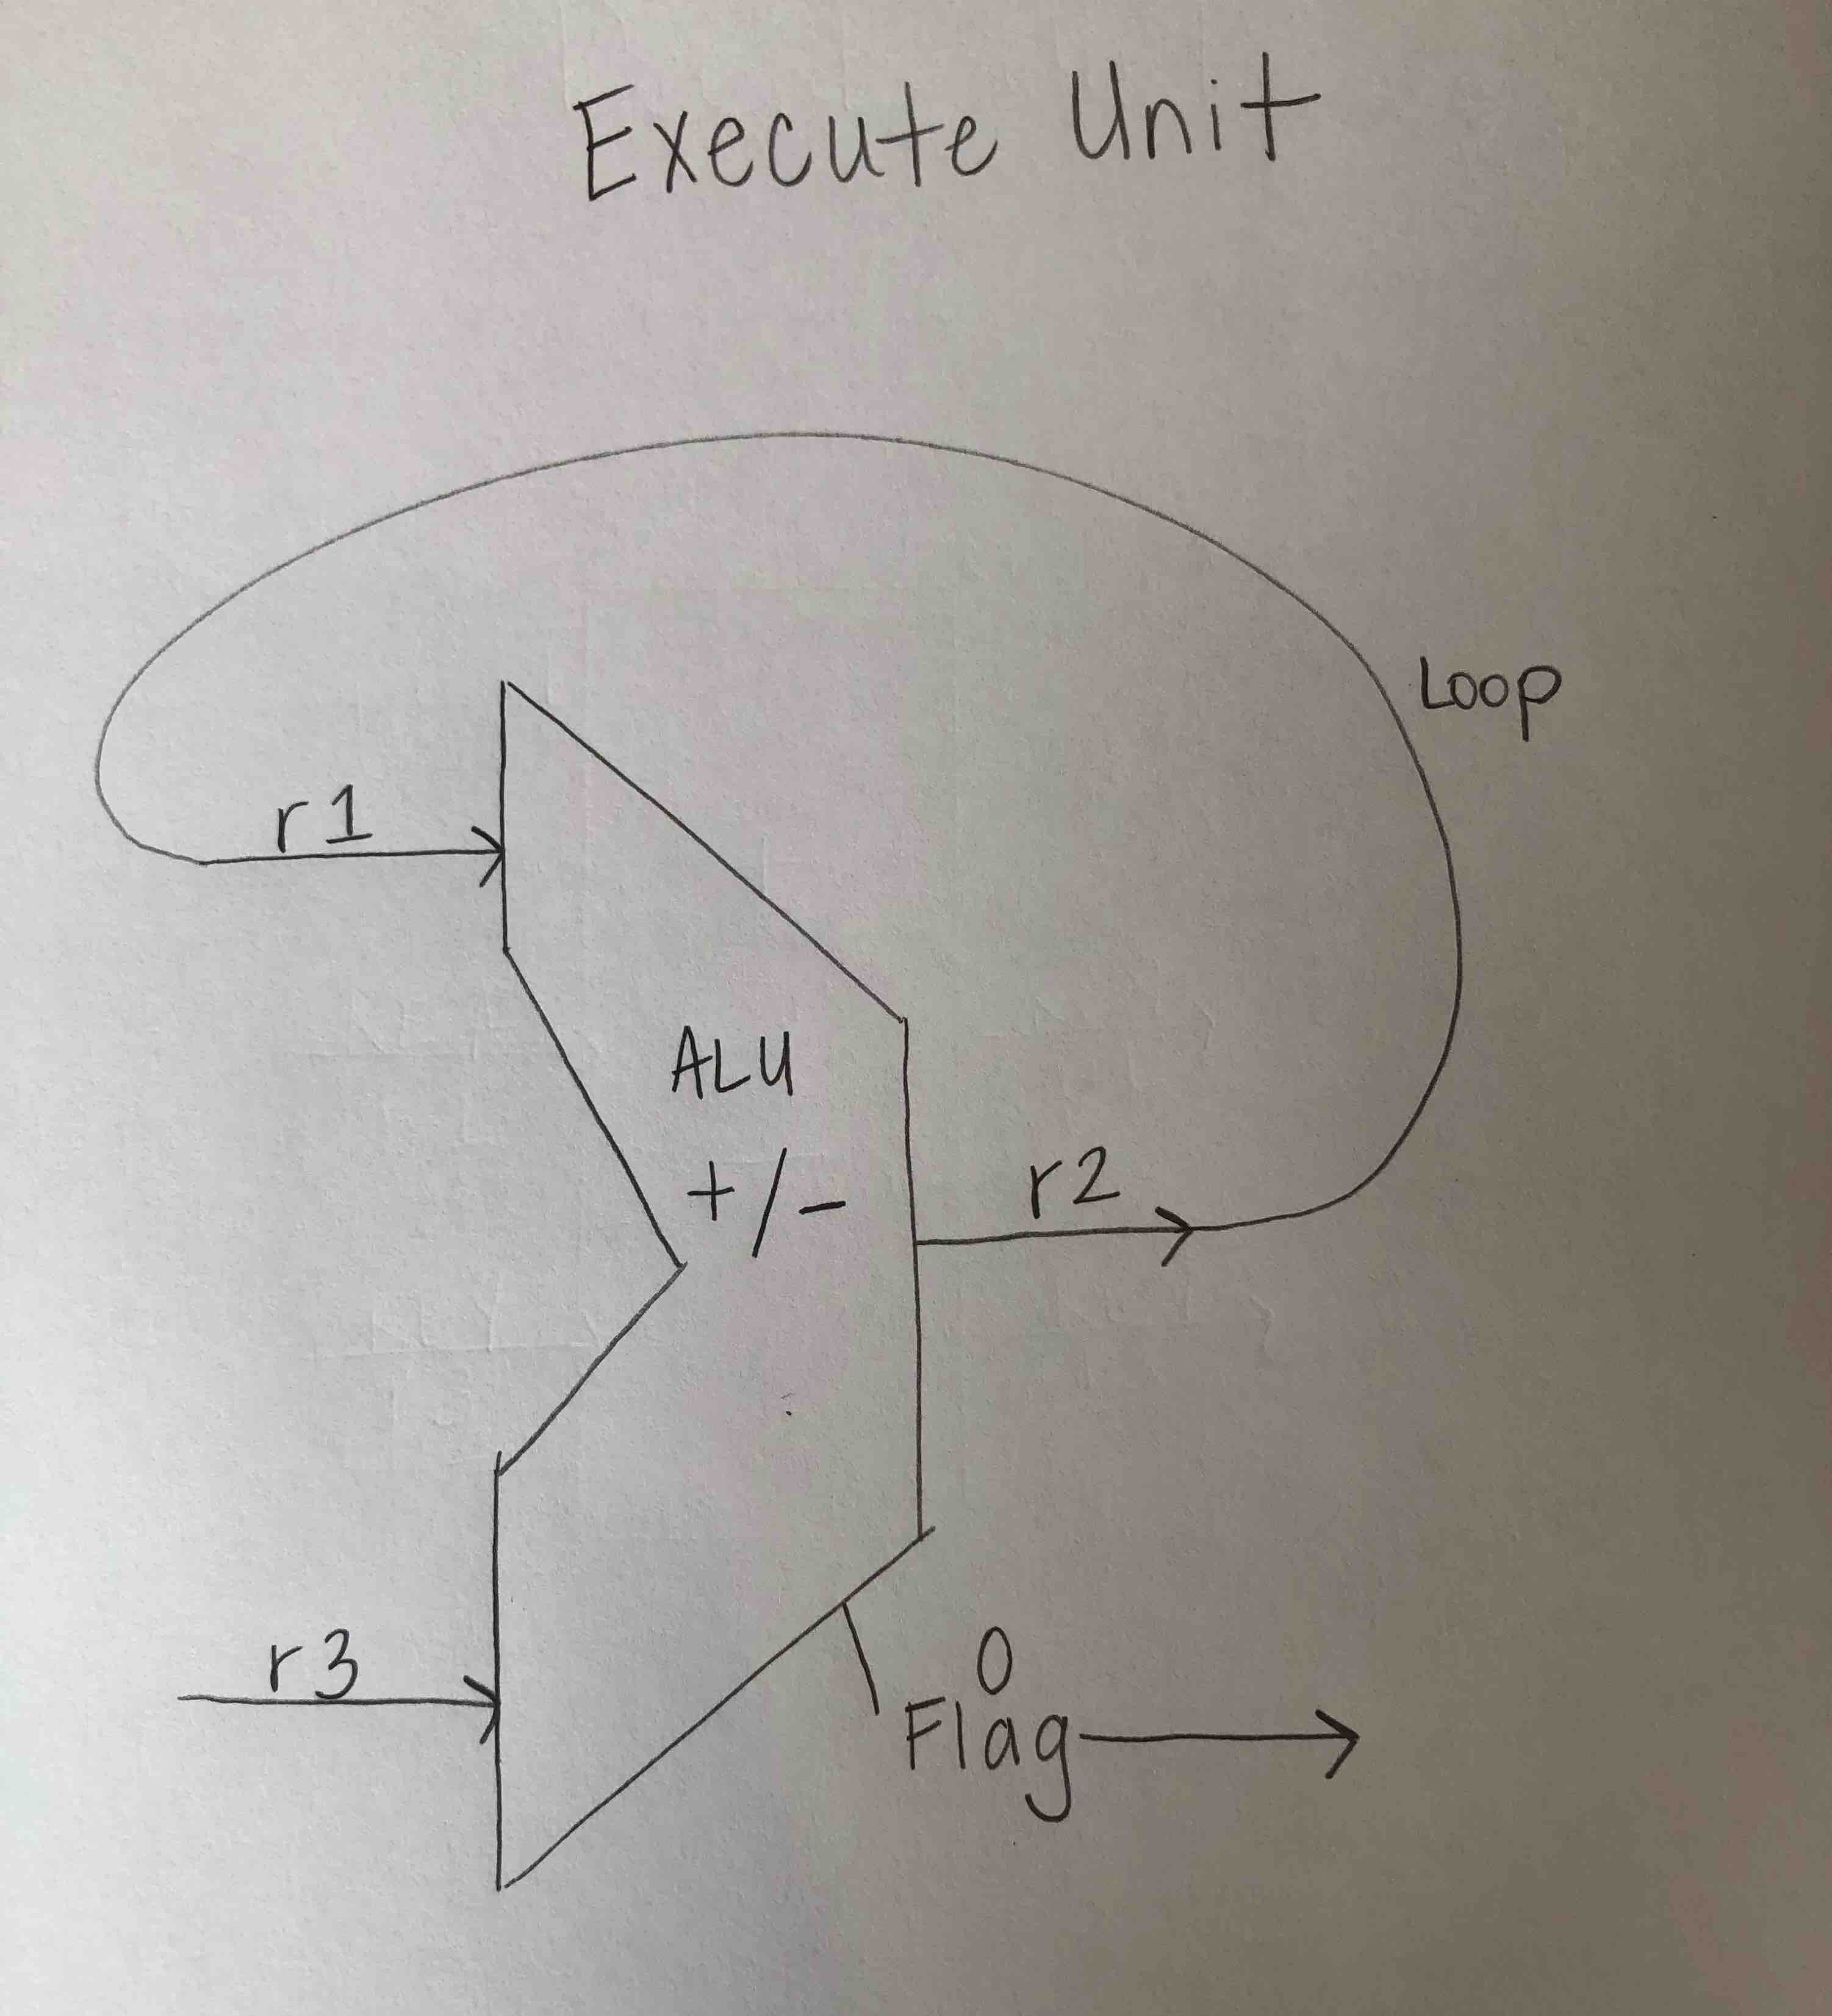 Execute Unit
Loop
r1
ALU
+/-
r2
r3
0
Flag